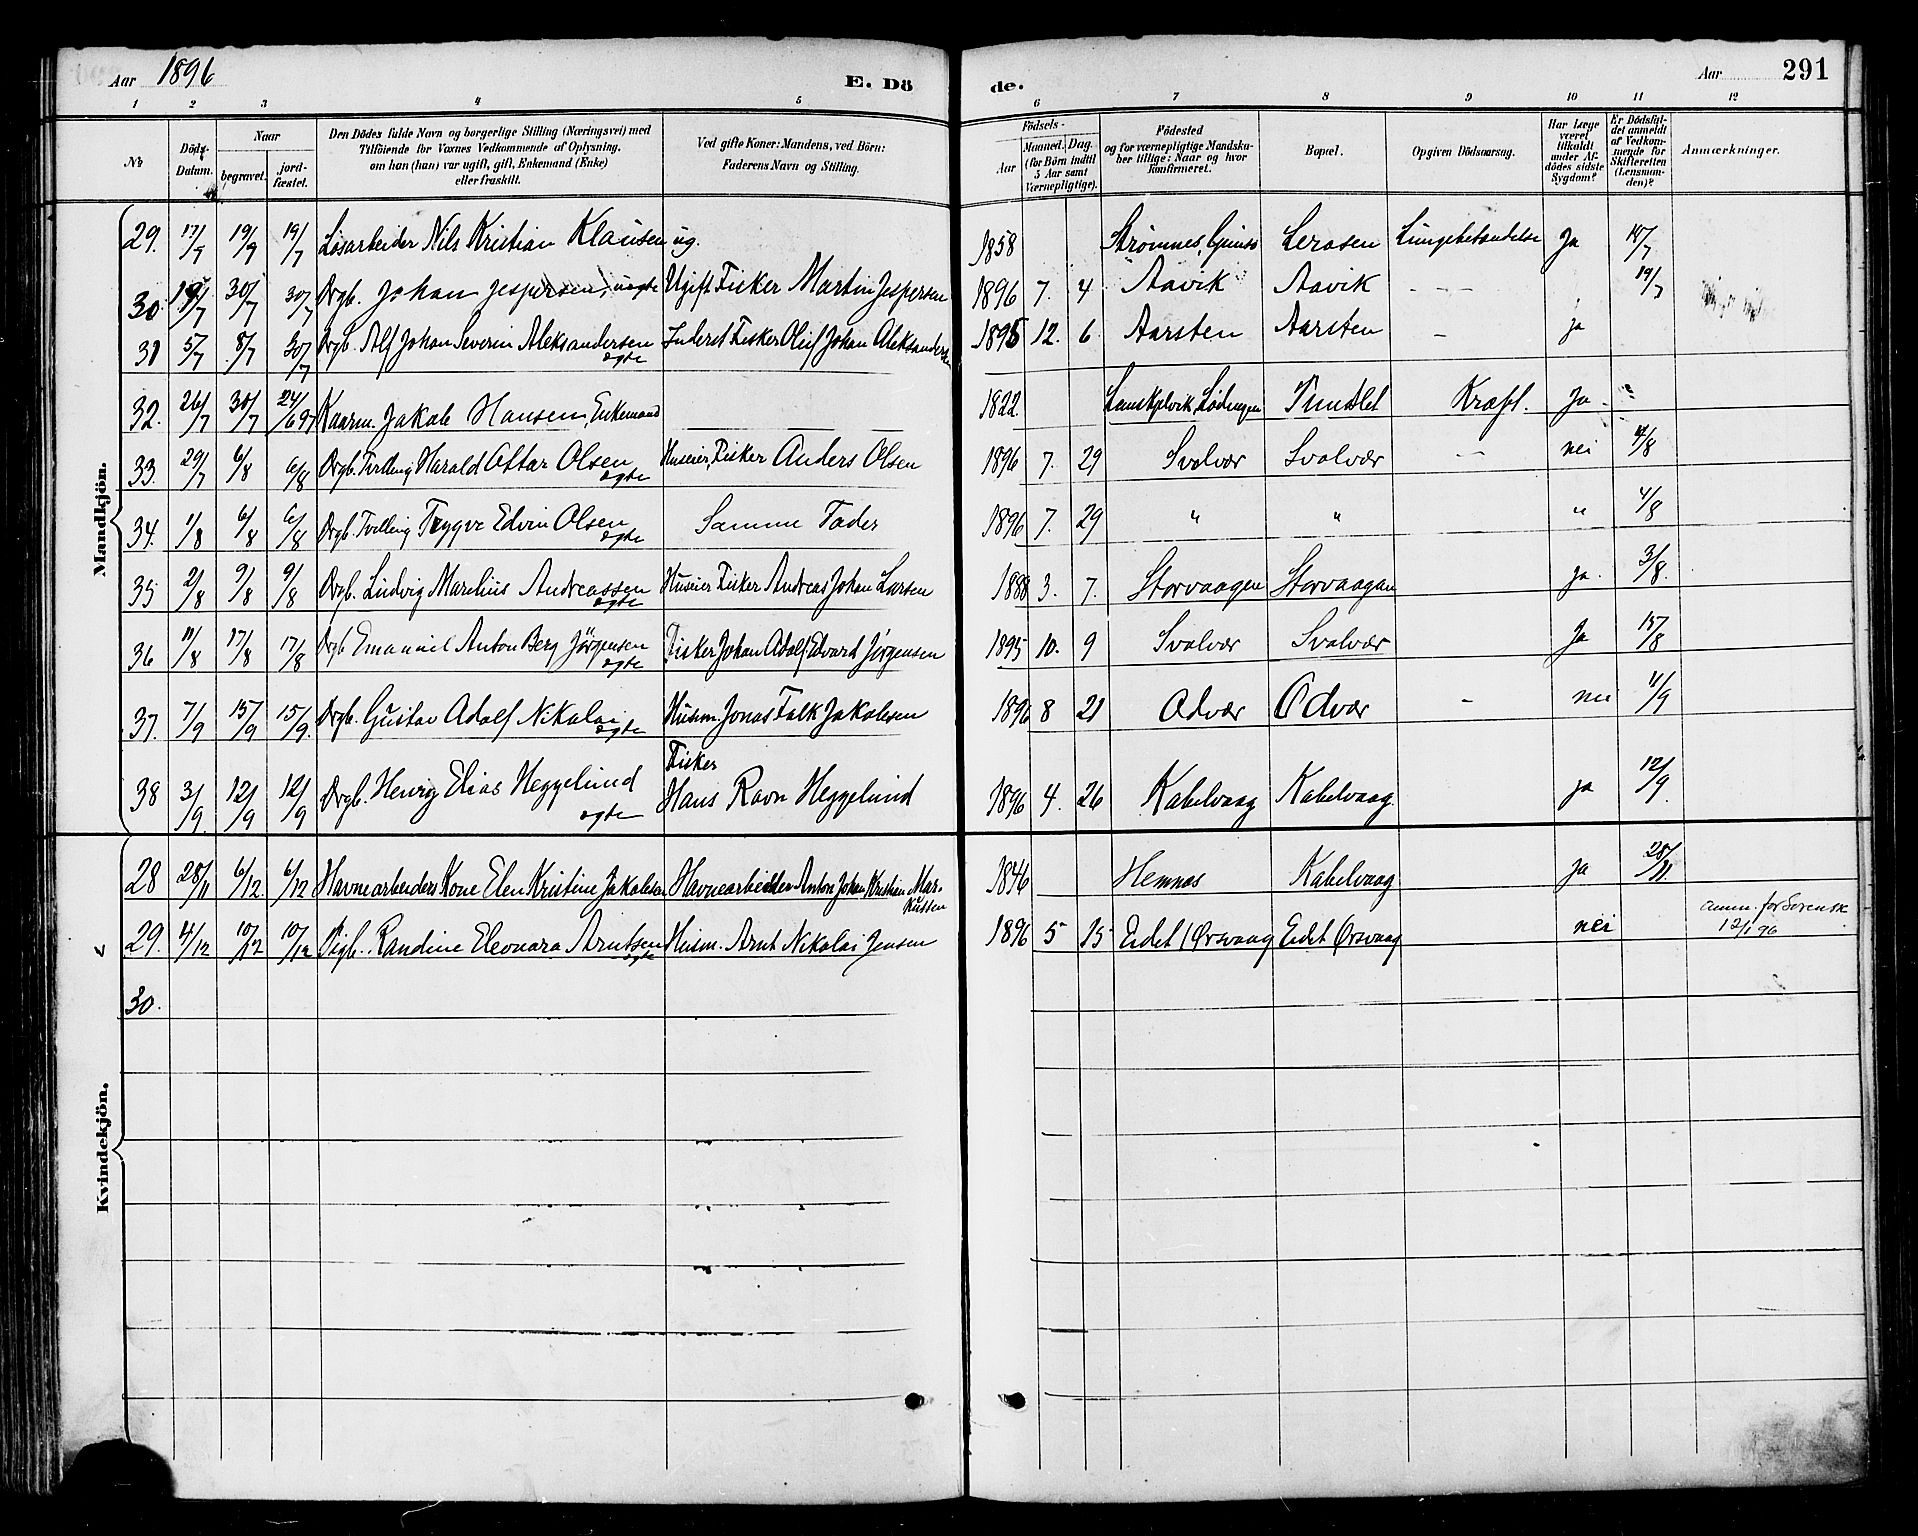 Aar 1896 E. Dö
de. Aar 291
1 2 3 4 5 6 7 8 9 10 11 12
No
Döds-Datum.
Naar
begravet.
jordfæstet.
Den Dödes fulde Navn og borgerlige Stilling (Næringsvei) med
Tilföiende for Voxnes Vedkommende af Oplysning,
om hun (han) var ugift, gift, Enkemand (Enke)
eller fraskilt.
Ved gifte Koner: Mandens, ved Börn:
Faderens Navn og Stilling.
Födsels-
Aar
Maaned. Dag.
(for Börn indtil
5 Aar samt
Værnepligtige).
Födested
og for værnepligtige Mandska-
ber tillige: Naar og hvor
konfirmeret.
Bopæl.
Opgiven Dödsaarsag.
Har Læge
været
tilkaldt
under Af-
dödes sidste
Sygdom?
Er Dödsfal-
det anmeldt
af Vedkom-
mende for
Skifteretten
(Lensman-
den)?
Anmærkninger.
Mandkjön.
29. 17/7 19/7 19/7 Løsarbeider Nils Kristian Klausen ug. 1858 Strømnes, Lerosen Lungebetændelse Ja 18/7
30. 30/7 30/7 Drgb. Johan Jespersen, uægte Ugift Fisker Martin Jespersen 1896 7. 4 Aavik Aavik - - - 19/7
31 5/7 8/7 30/7 Drgb. Alf Johan Severin Aleksandersen ægte Inderst Fisker Oluf Johan Aleksandersen 1895 12. 6 Aarsten Aarsten - ja
32. 26/7 30/7 24/6 97 Kaarm. Jakob Hansen, Enkemand 1822 Lødingen Kræft. Ja
33. 29/7 6/8 6/8 Drgb. Tvilling Harald Ottar Olsen ægte Huseier, Fisker Anders Olsen 1896 7. 29 Svolvær Svolvær - nei 4/8
34. 1/8 6/8 6/8 Drgb. Tvilling Trygve Edvin Olsen ægte Samme Fader 1896 7. 29 " " " 4/8
35 2/8 9/8 9/8 Drgb. Ludvig Marelius Andreassen ægte Huseier Fisker Andreas Johan Larsen 1888 3. 7. Storvaagen Storvaagan ja. 3/8.
36 11/8 17/8 17/8 Drgb Emanuel Anton Berg Jörgensen ægte Fisker Johan Adolf Edvard Jørgensen 1895 10. 9 Svolvær Svolvær Ja 15/8
37. 7/9 15/9 15/9. Drgb. Gustav Adolf Nikolai ægte Husm. Jonas Falk Jakobsen 1896 8 21 Odvær Odvær - nei 11/9
38 3/9. 12/9 12/9 Drgb. Henrig Elias Heggelund ægte Fisker Hans Ravn Heggelund 1896 4. 26 Kabelvaag Kabelvaag. ja 12/9.
Kvindekjön.
28 28/11 6/12 6/12 Havnearbeiders Kone Elen Kristine Jakobsen Havnearbeider Anton Johan Kristian Markussen 1846 Hemnæs Kabelvaag ja 28/11
29. 4/12 10/12 10/12 Pigb. Randine Eleonora Arntsen ægte Husm. Arnt Nikolai Jensen 1896 5 15 Eidet i Ørsvaag Eidet Ørsvaag nei anm. for Sorensk. 12/1 96
30.